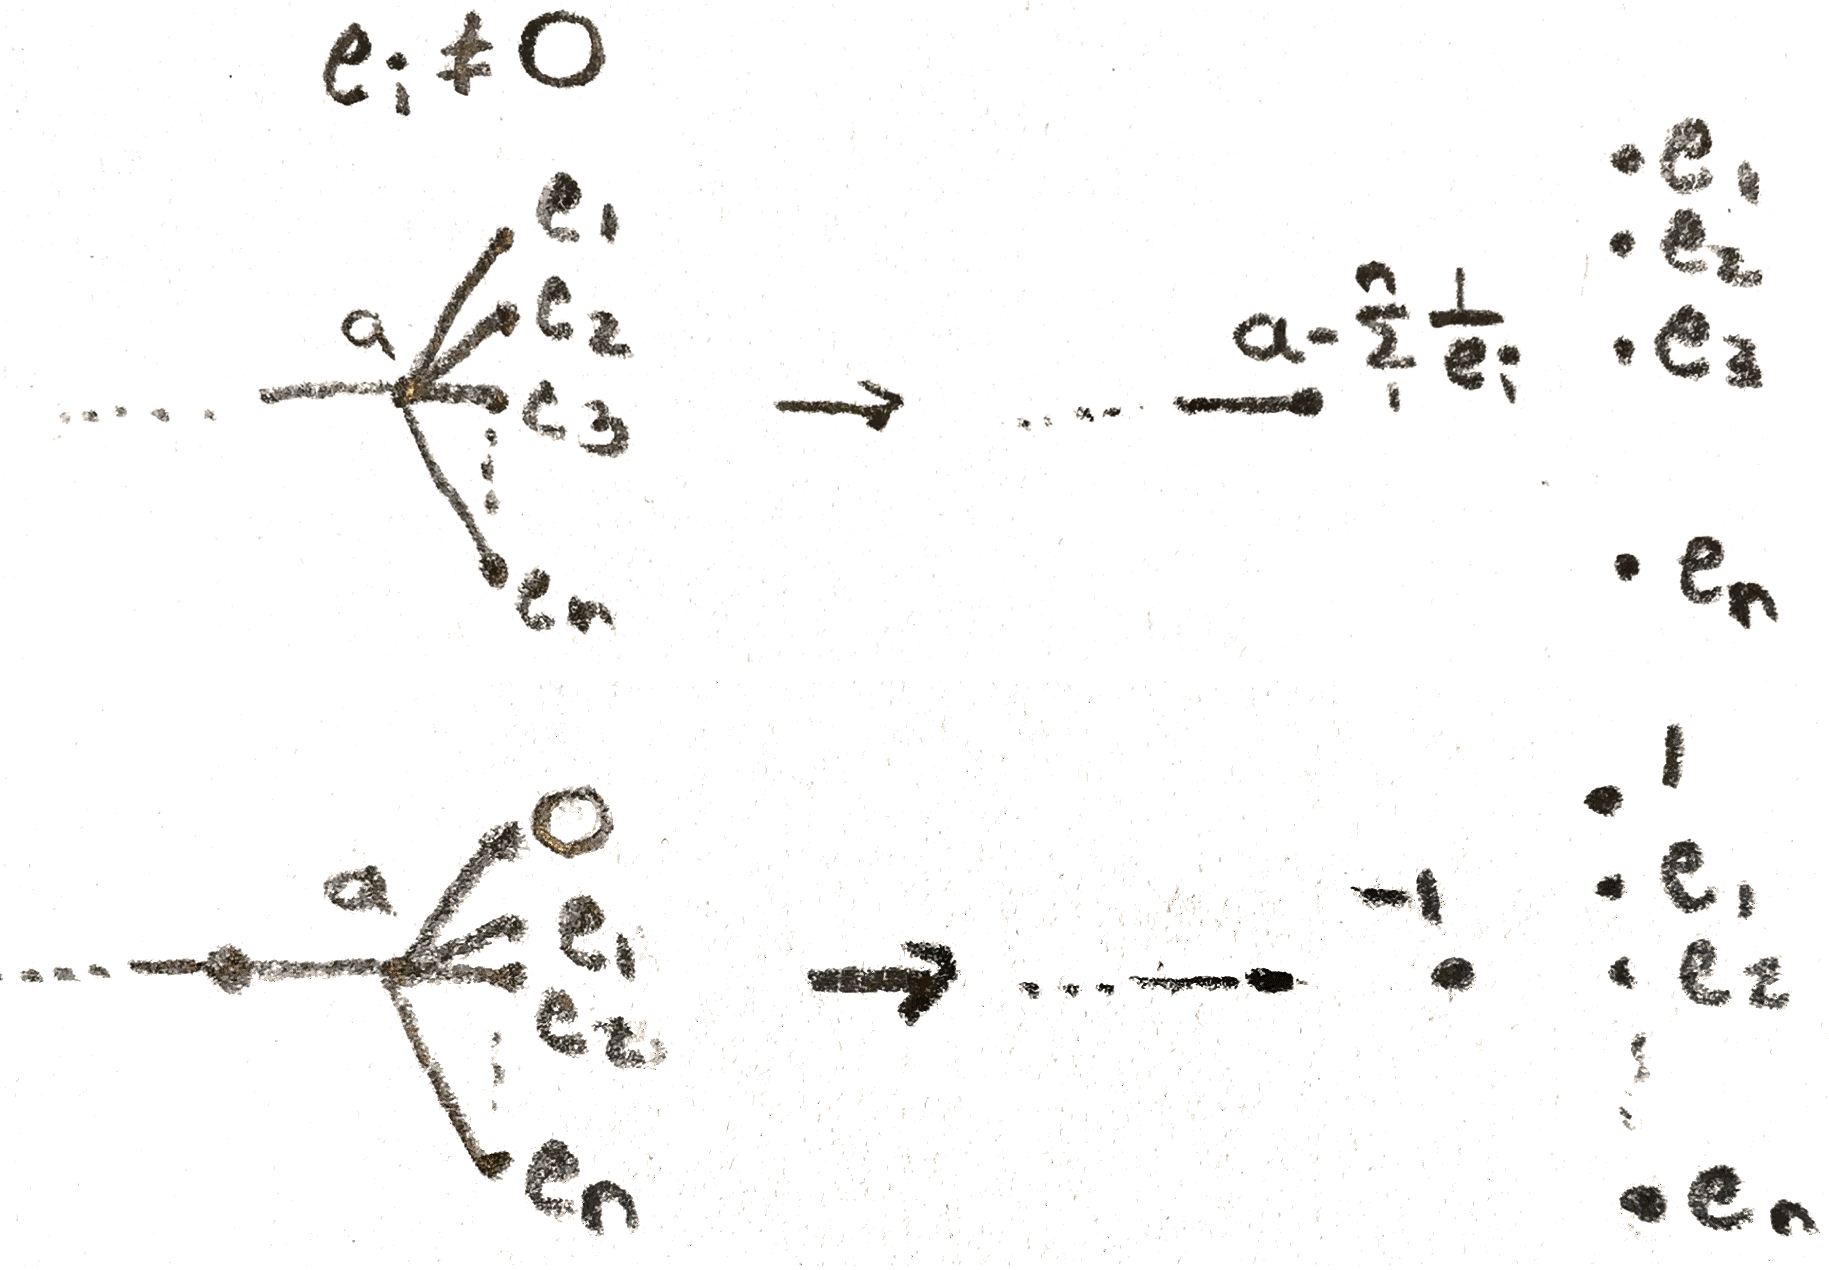 e_i ≠ 0
e_1
e_2
a
e_3
e_n
a - \sum_1^n \frac{1}{e_i}
e_1
e_2
e_3
e_n
0
a
e_1
e_2
e_n
-1
1
e_1
e_2
e_n